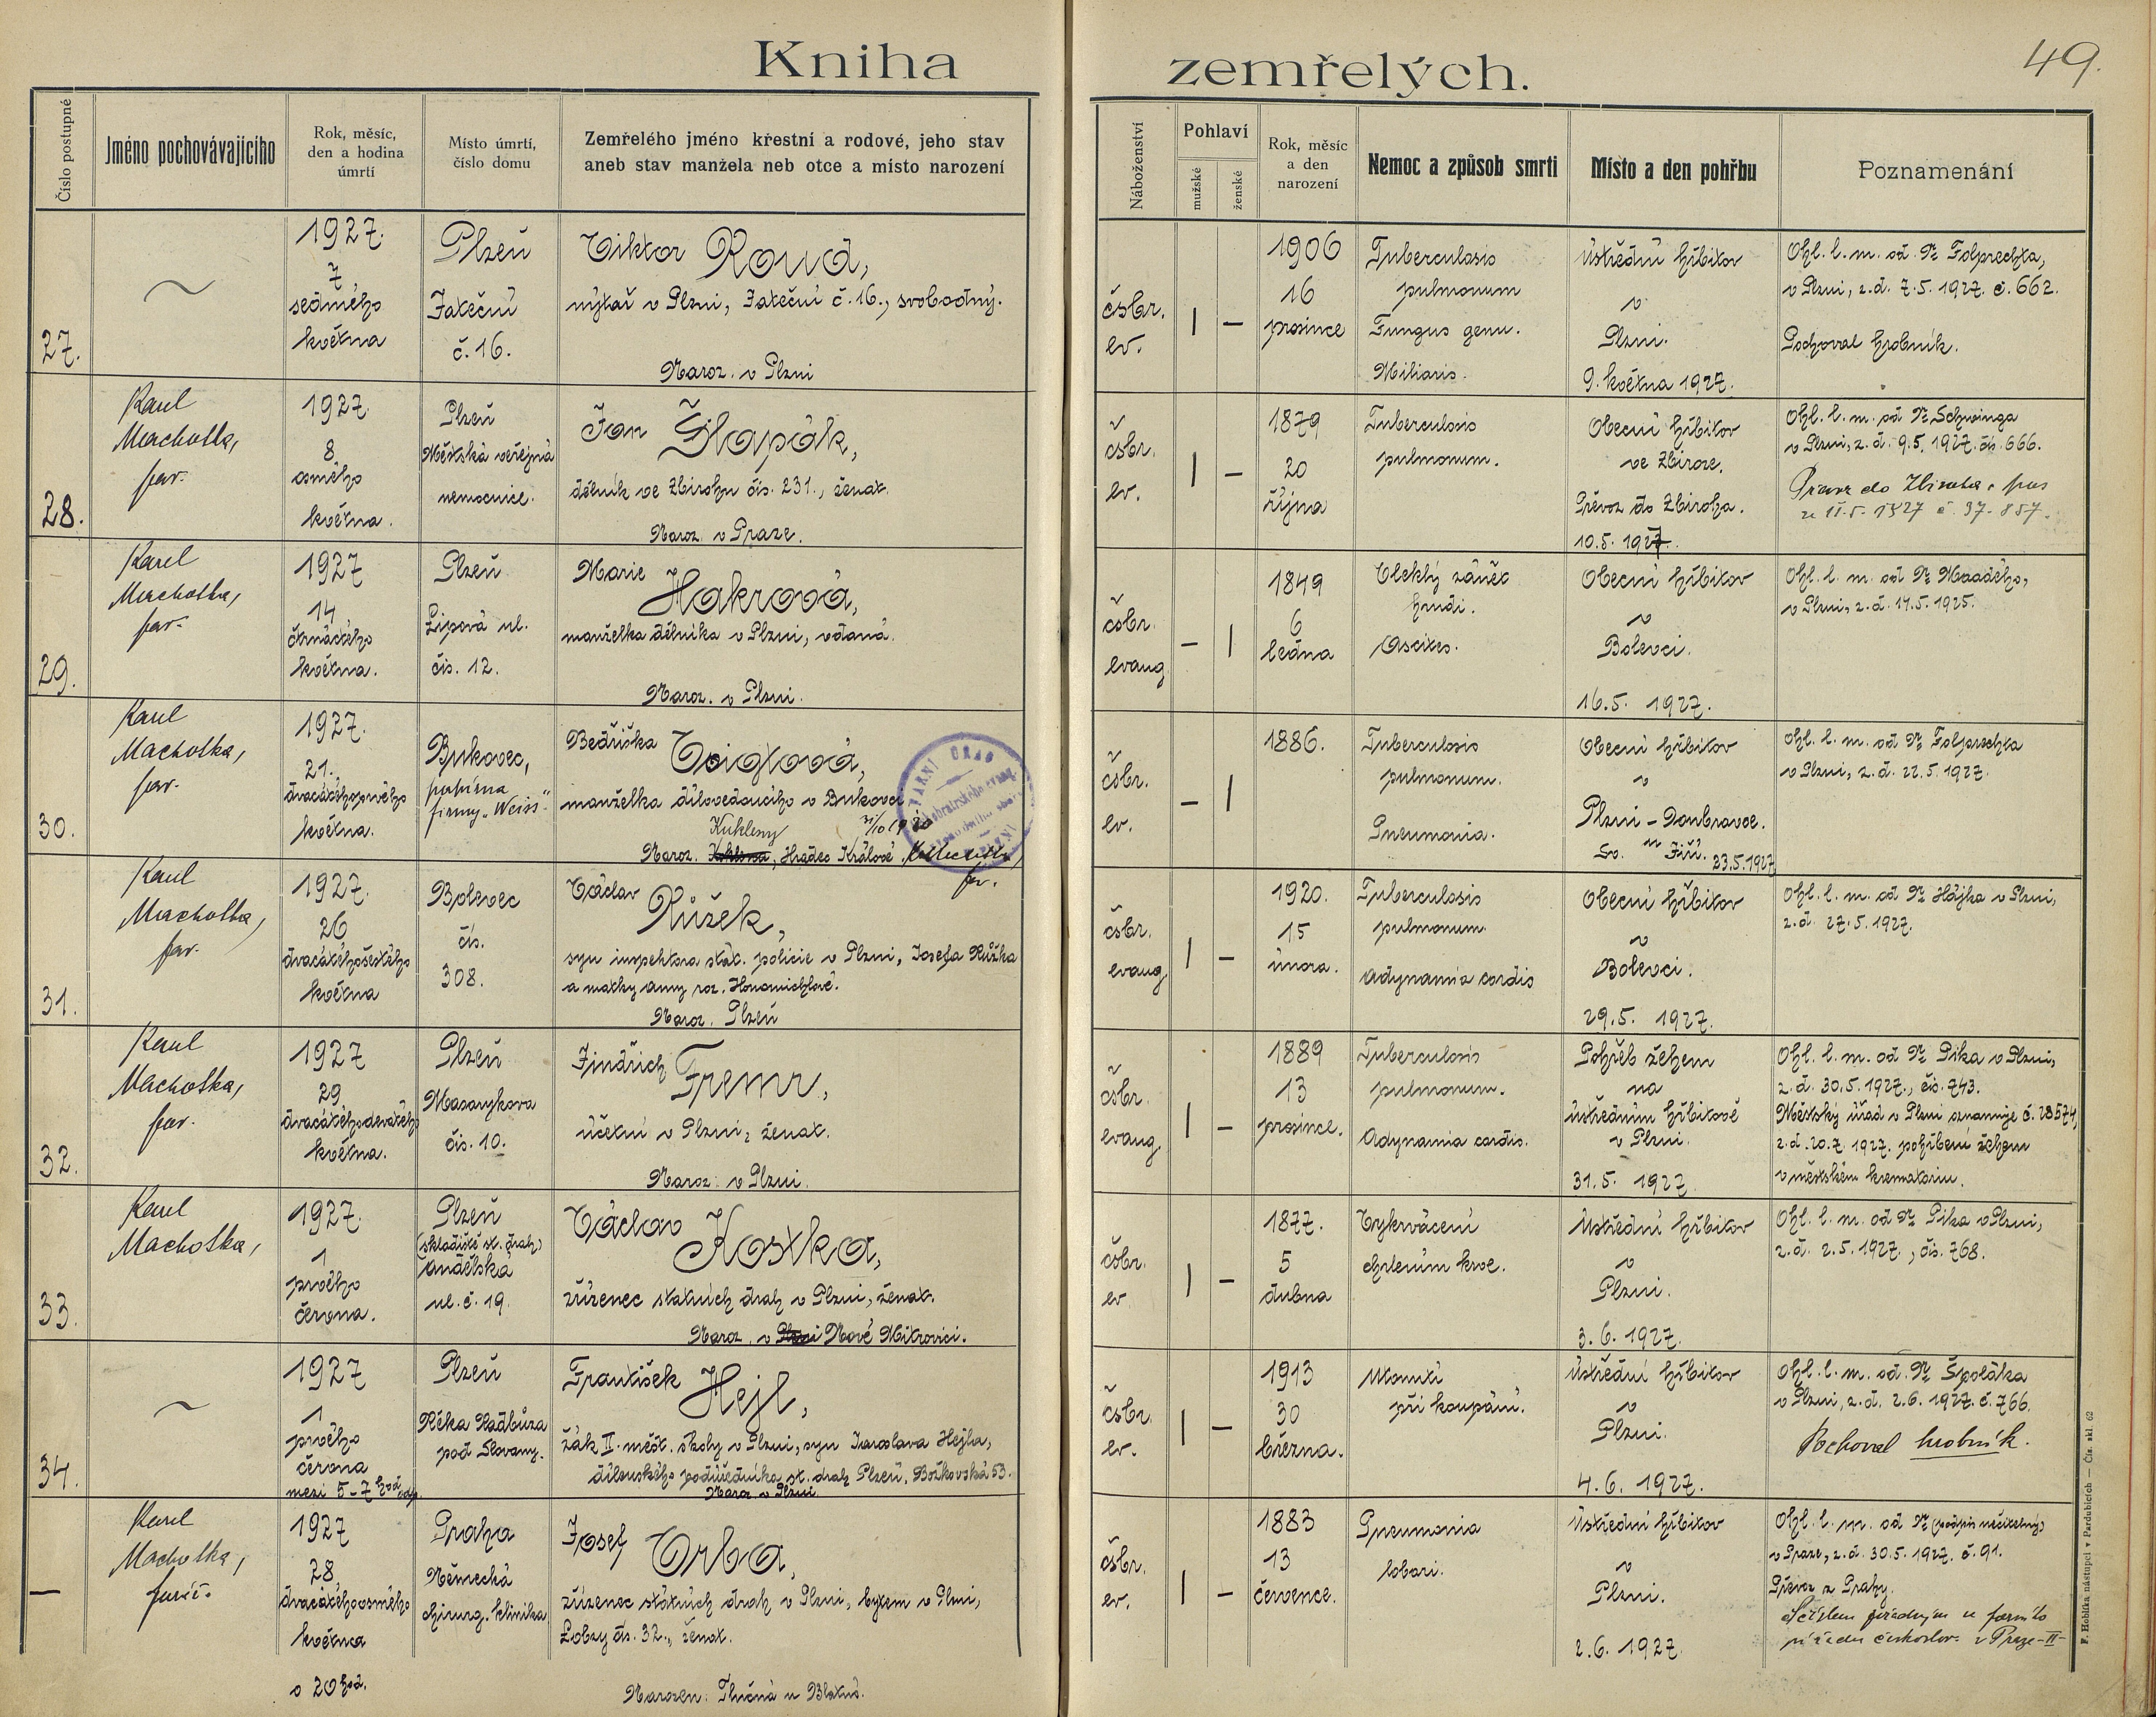 Kniha zemřelých.
49.
Číslo postupné
Jméno pochovávajícího
Rok, měsíc,
den a hodina
úmrtí
Místo úmrtí,
číslo domu
Zemřelého jméno křestní a rodové, jeho stav
aneb stav manžela neb otce a místo narození
Náboženství
Pohlaví
mužské
ženské
Rok, měsíc
a den
narození
Nemoc a způsob smrti
Místo a den pohřbu
Poznamenání
27.
1927.
7
sedmého
května
Plzeň
Jateční
č. 16.
Viktor Roud,
nýtař v Plzni, Jateční č. 16., svobodný.
Naroz. v Plzni
čsbr.
ev.
1906
16
prosince
Tuberculosis
pulmonum
Fungus genu.
Miliaris.
ústřední hřbitov
v
Plzni.
9. května 1927.
Ohl. l. m. od Dr Folprechta,
v Plzni, z. d. 7. 5. 1927. č. 662.
Pochoval hrobník.
28.
Karel
Machotka,
far.
1927.
8
osmého
května.
Plzeň
Městská veřejná
nemocnice.
Jan Šlapák,
dělník ve Zbirohu čís. 231., ženat.
Naroz. v Praze.
čsbr.
ev.
1879
20
října
Tuberculosis
pulmonum.
Obecní hřbitov
ve Zbiroze.
Převoz do Zbiroha.
10. 5. 1927.
Ohl. l. m. od Dr Schwinga
v Plzni, z. d. 9. 5. 1927. čís. 666.
do Zbiroha. pas
11. 5. 1927 č. 37-857.
29.
Karel
Machotka,
far.
1927
14
čtrnáctého
května.
Plzeň
Lipová ul.
čís. 12.
Marie Hakrová,
manželka dělníka v Plzni, vdaná.
Naroz. v Plzni.
čsbr.
evang.
1849
6
ledna
Vleklý zánět
hrudi.
Ascites.
Obecní hřbitov
v
Bolevci.
16. 5. 1927.
Ohl. l. m. od Dr Maadého,
v Plzni, z. d. 14. 5. 1925.
30.
Karel
Machotka,
far.
1927.
21.
dvacátéhoprvého
května.
Bukovec,
papírna
firmy „Weiss“
Bedřiška Voiglová,
manželka dílovedoucího v Bukovci
Kukleny 31/10 1930
Naroz. Kuklena, Hradec Králové. K. Machotka,
far.
FARNÍ ÚŘAD
čsbr.
ev.
1886.
Tuberculosis
pulmonum.
Pneumonia.
Obecní hřbitov
v
Plzni - Doubravce.
Sv. Jiří. 23. 5. 1927
Ohl. l. m. od Dr Folprechta
v Plzni, z. d. 22. 5. 1927.
31.
Karel
Machotka,
far.
1927.
26
dvacátéhošestého
května
Bolevec
čís.
308.
Václav Růžek,
syn inspektora stát. policie v Plzni, Josefa Růžka
a matky Anny roz. Honomichlové.
Naroz. Plzeň
čsbr.
evang.
1920.
15
února.
Tuberculosis
pulmonum.
Adynamia cordis
Obecní hřbitov
v
Bolevci.
29. 5. 1927.
Ohl. l. m. od Dr Hájka v Plzni,
z. d. 27. 5. 1927.
32.
Karel
Machotka,
far.
1927
29
dvacátéhodevátého
května.
Plzeň
Masarykova
čís. 10.
Jindřich Fremr,
účetní v Plzni, ženat.
Naroz. v Plzni.
čsbr.
evang.
1889
13
prosince.
Tuberculosis
pulmonum.
Adynamia cordis.
Pohřeb žehem
na
ústředním hřbitově
v Plzni.
31. 5. 1927
Ohl. l. m. od Dr Pika v Plzni,
z. d. 30. 5. 1927., čís. 743.
Městský úřad v Plzni oznamuje č. 28574,
z. d. 20. 7. 1927. pohřbení žehem
v městském krematoriu.
33.
Karel
Machotka,
1927.
1
prvého
června.
Plzeň
(skladiště st. drah)
Andělská
ul. č. 19.
Václav Kostka,
zřízenec státních drah v Plzni, ženat.
Naroz. v Plzni Nové Mitrovici.
čsbr.
ev
1877.
5
dubna
Vykrvácení
chrlením krve.
Ústřední hřbitov
v
Plzni.
3. 6. 1927.
Ohl. l. m. od Dr Pika v Plzni,
z. d. 2. 5. 1927., čís. 768.
34.
1927
1
prvého
června
mezi 5-7 hod. odp.
Plzeň
Řeka Radbuza
pod Slovany.
František Hejl,
žák II. měšt. školy v Plzni, syn Jaroslava Hejla,
dílenského podúředníka st. drah Plzeň, Božkovská 53.
Naroz. v Plzni.
čsbr.
ev.
1913
30
března.
Utonutí
při koupání.
Ústřední hřbitov
v
Plzni.
4. 6. 1927.
Ohl. l. m. od Dr Špoláka
v Plzni, z. d. 2. 6. 1927. č. 766.
Pochoval hrobník.
—
Karel
Machotka,
farář.
1927
28
dvacátéhoosmého
května
o 20 hod.
Praha
Německá
chirurg. klinika
Josef Vrba,
zřízenec státních drah v Plzni, bytem v Plzni,
Lobzy čís. 32., ženat.
Narozen: Tlučná u Blatnic.
čsbr.
ev.
1883
13
července.
Pneumonia
lobari.
Ústřední hřbitov
v
Plzni.
2. 6. 1927.
Ohl. l. m. od Dr (podpis nečitelný)
v Praze, z. d. 30. 5. 1927. č. 91.
Převoz z Prahy.
úřadu českoslov. v Praze-II-
F. Hoblíka nástupci v Pardubicích — Čís. skl. 62